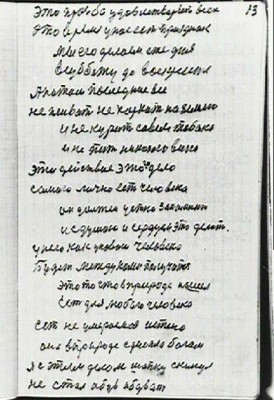 13
Это просьба удовлетворить всех
Это время унесет признак
мы его делаем сте дня
В субботу до воскресенья
А потом последние все
не плевать не харкать на землю
и не курить совсем табака
и не пить никакого вина
Эти действие это дело
самого лично есть человека
он должен успно запомнить
и душою и сердцем это делать.
у него как у такого человека
Будет между нами получатся
Это то что в природе нашел
Сет для любого человека
сеть не умерающая истено
она в природе сделала богам
я с этим делом шапку скинул
не стал обув обувать